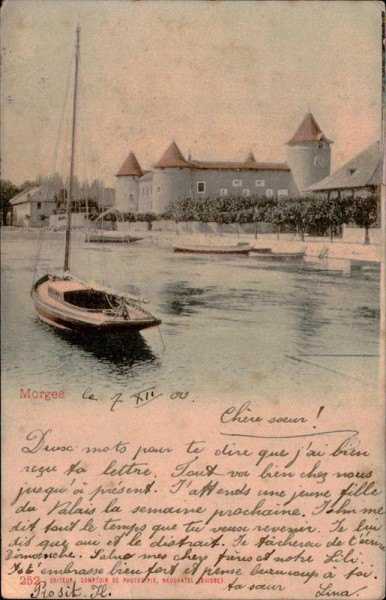 Morges
le 7 XII 00
Chère soeur!
Deux mots pour te dire que j'ai bien
reçu ta lettre. Tout va bien chez nous
jusqu'à présent. J'attends une jeune fille
du Valais la semaine prochaine. me
dit tout le temps que tu veux revenir. Je lui
dis que oui et le distrait. Je tâcherai de t'écrire
Dimanche. Salue mes chez frères et notre Lili.
Je t'embrasse bien fort et pense beaucoup à toi.
252 EDITEUR, COMPTOIR DE PHOTOTYPIE, NEUCHATEL (SUISSE)
Prosit. ta soeur Lina.